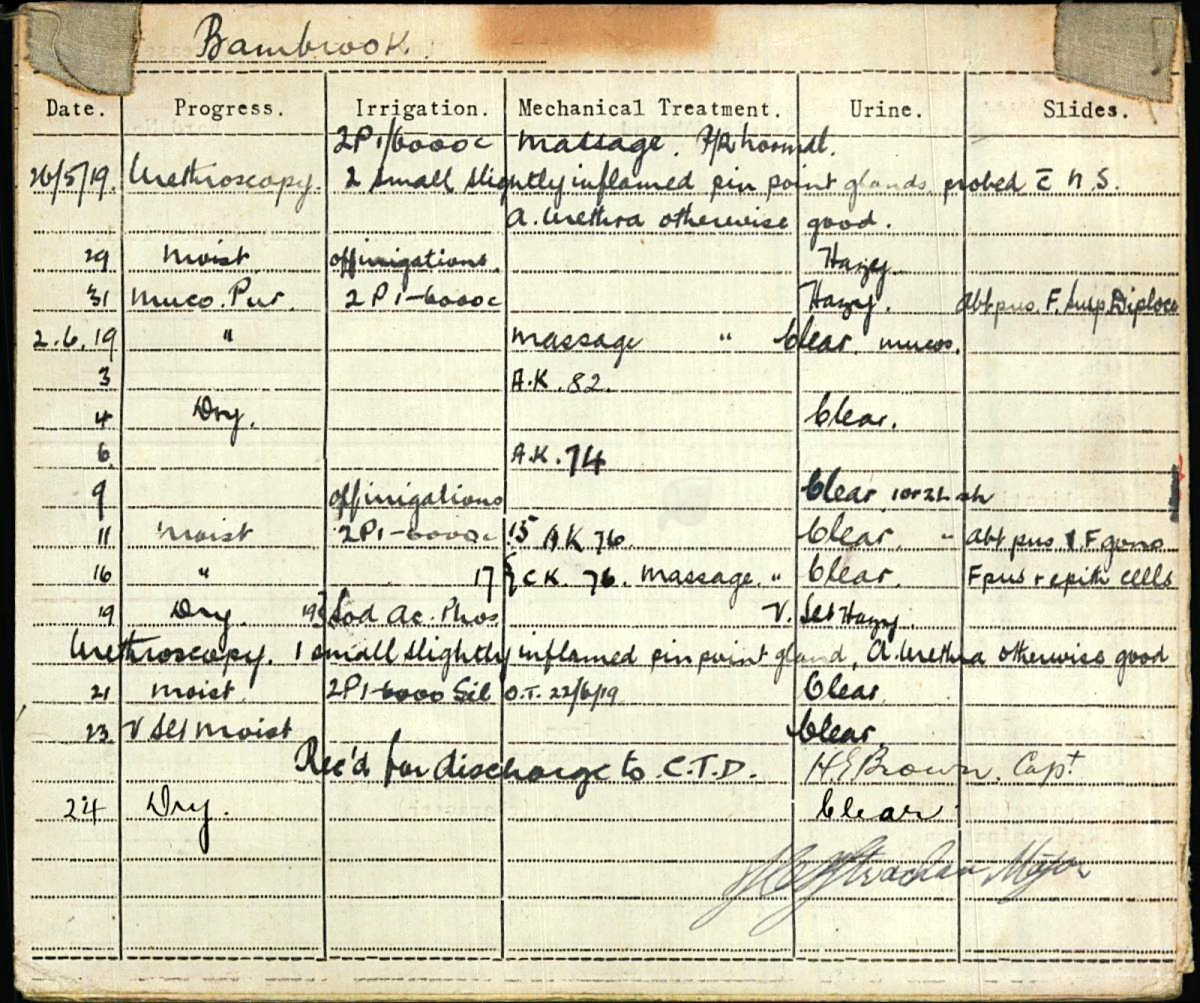 Bambrook.
Date. Progress. Irrigation. Mechanical Treatment. Urine. Slides.
2P1/6000c massage. P/R normal.
26/5/19. Urethroscopy. 2 small slightly inflamed pin point glands probed c̄ N.S.
A. Urethra otherwise good.
29 Moist off irrigations. Hazy.
31 Muco. Pur. 2P1-6000c Hazy. Abt pus. F. Susp. Diploco
2.6.19 " Massage " Clear. mucos.
3 A.K. 82.
4 Dry. Clear.
6 A.K. 74
9 off irrigations Clear 1 or 2 L sh
11 Moist 2P1-6000c 15 A K 76. Clear. " Abt pus F gono
16 " 17 C K. 76. Massage. " Clear. F pus + epith cells
19 Dry. 19 Sod Ac. Phos V. Slt Hazy.
Urethroscopy. 1 small slightly inflamed pin point gland, A. Urethra otherwise good
21 Moist. 2P1-6000 Sil O.T. 22/6/19 Clear.
23 V Slt Moist Clear.
Rec'd for discharge to C.T.D. H E Brown. Capt
24 Dry. Clear.
Strachan Major